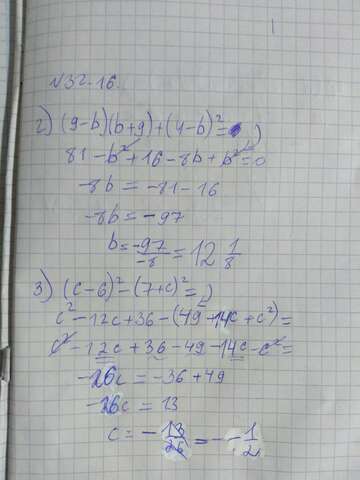 №32.16.
2) (9-b)(b+9)+(4-b)²=0
81-b²+16-8b+b²=0
-8b=-81-16
-8b=-97
b=-97/-8=12 1/8
3) (c-6)²-(7+c)²=0
c²-12c+36-(49+14c+c²)=
c²-12c+36-49-14c-c²=
-26c=-36+49
-26c=13
c=-13/26=--1/2